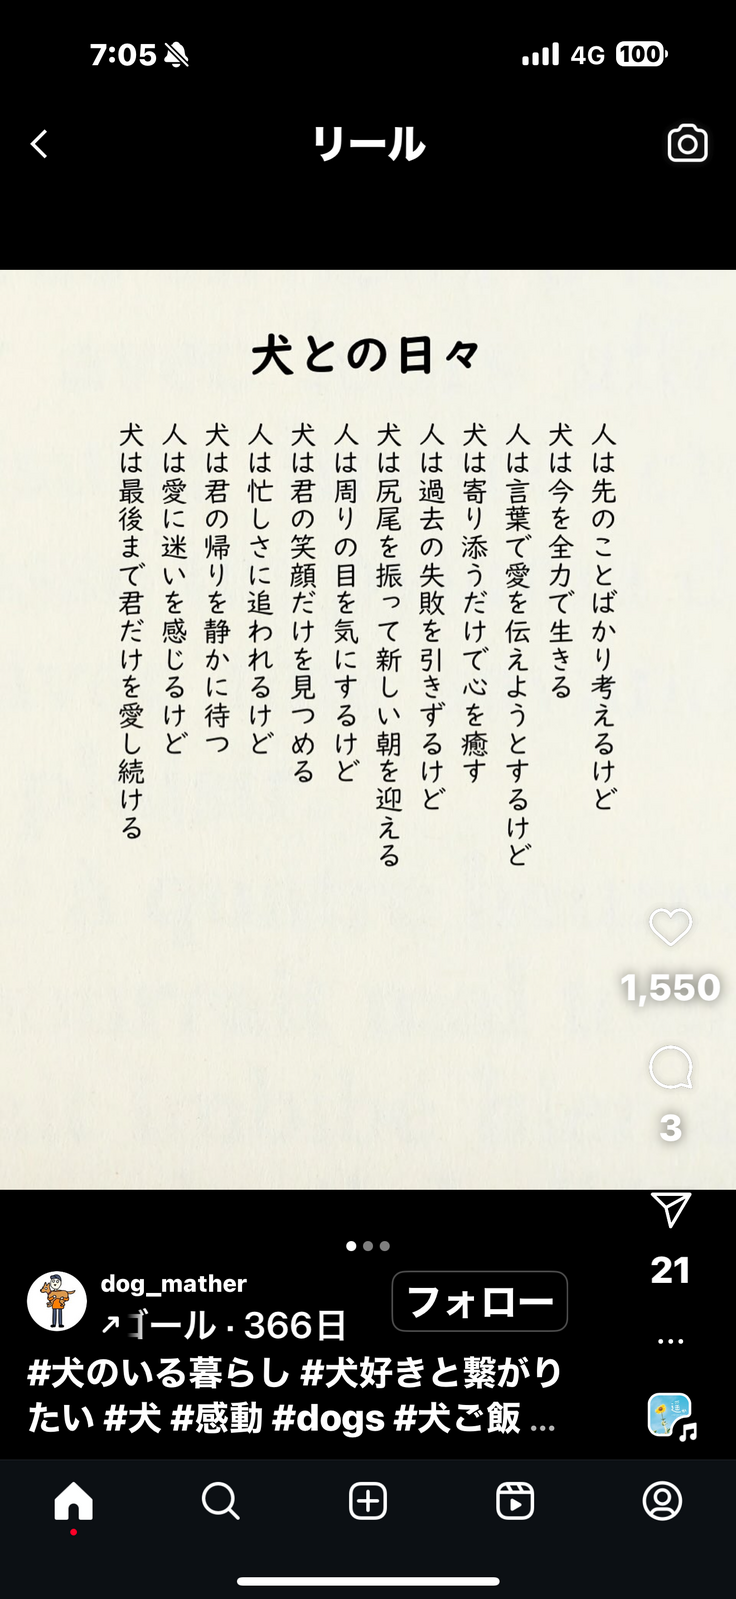 7:05
4G
100
リール
犬との日々
人は先のことばかり考えるけど
犬は今を全力で生きる
人は言葉で愛を伝えようとするけど
犬は寄り添うだけで心を癒す
人は過去の失敗を引きずるけど
犬は尻尾を振って新しい朝を迎える
人は周りの目を気にするけど
犬は君の笑顔だけを見つめる
人は忙しさに追われるけど
犬は君の帰りを静かに待つ
人は愛に迷いを感じるけど
犬は最後まで君だけを愛し続ける
1,550
3
21
dog_mather
フォロー
ゴール · 366日
#犬のいる暮らし #犬好きと繋がり
たい #犬 #感動 #dogs #犬ご飯 ...